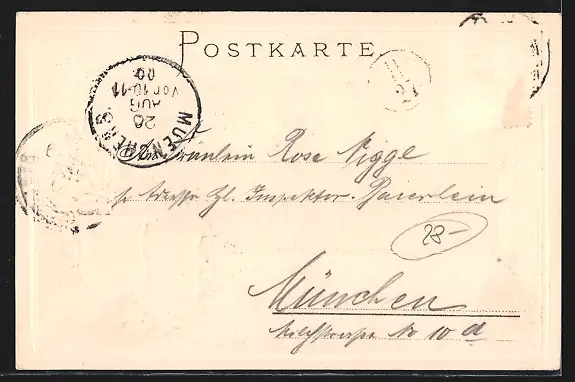 POSTKARTE
MUENCHEN
20
AUG
Vor 10-11
00
Fräulein Rose Nigge
p. Adresse Hl. Inspektor Baierlein
28-
München
No 10 d